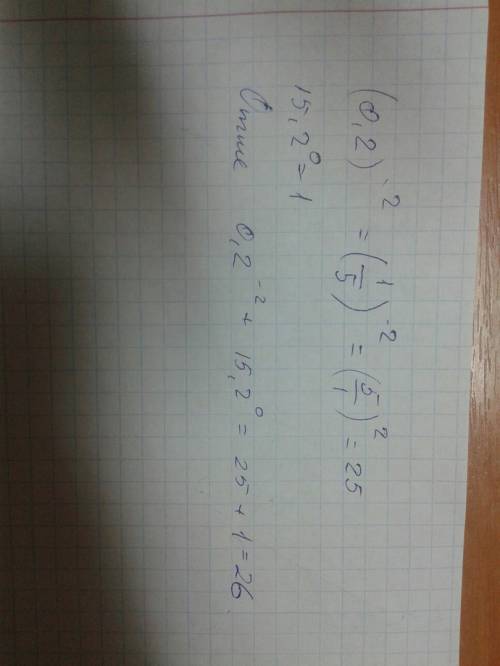 (0,2)⁻² = (1/5)⁻² = (5/1)² = 25
15,2⁰ = 1
0,2⁻² + 15,2⁰ = 25 + 1 = 26